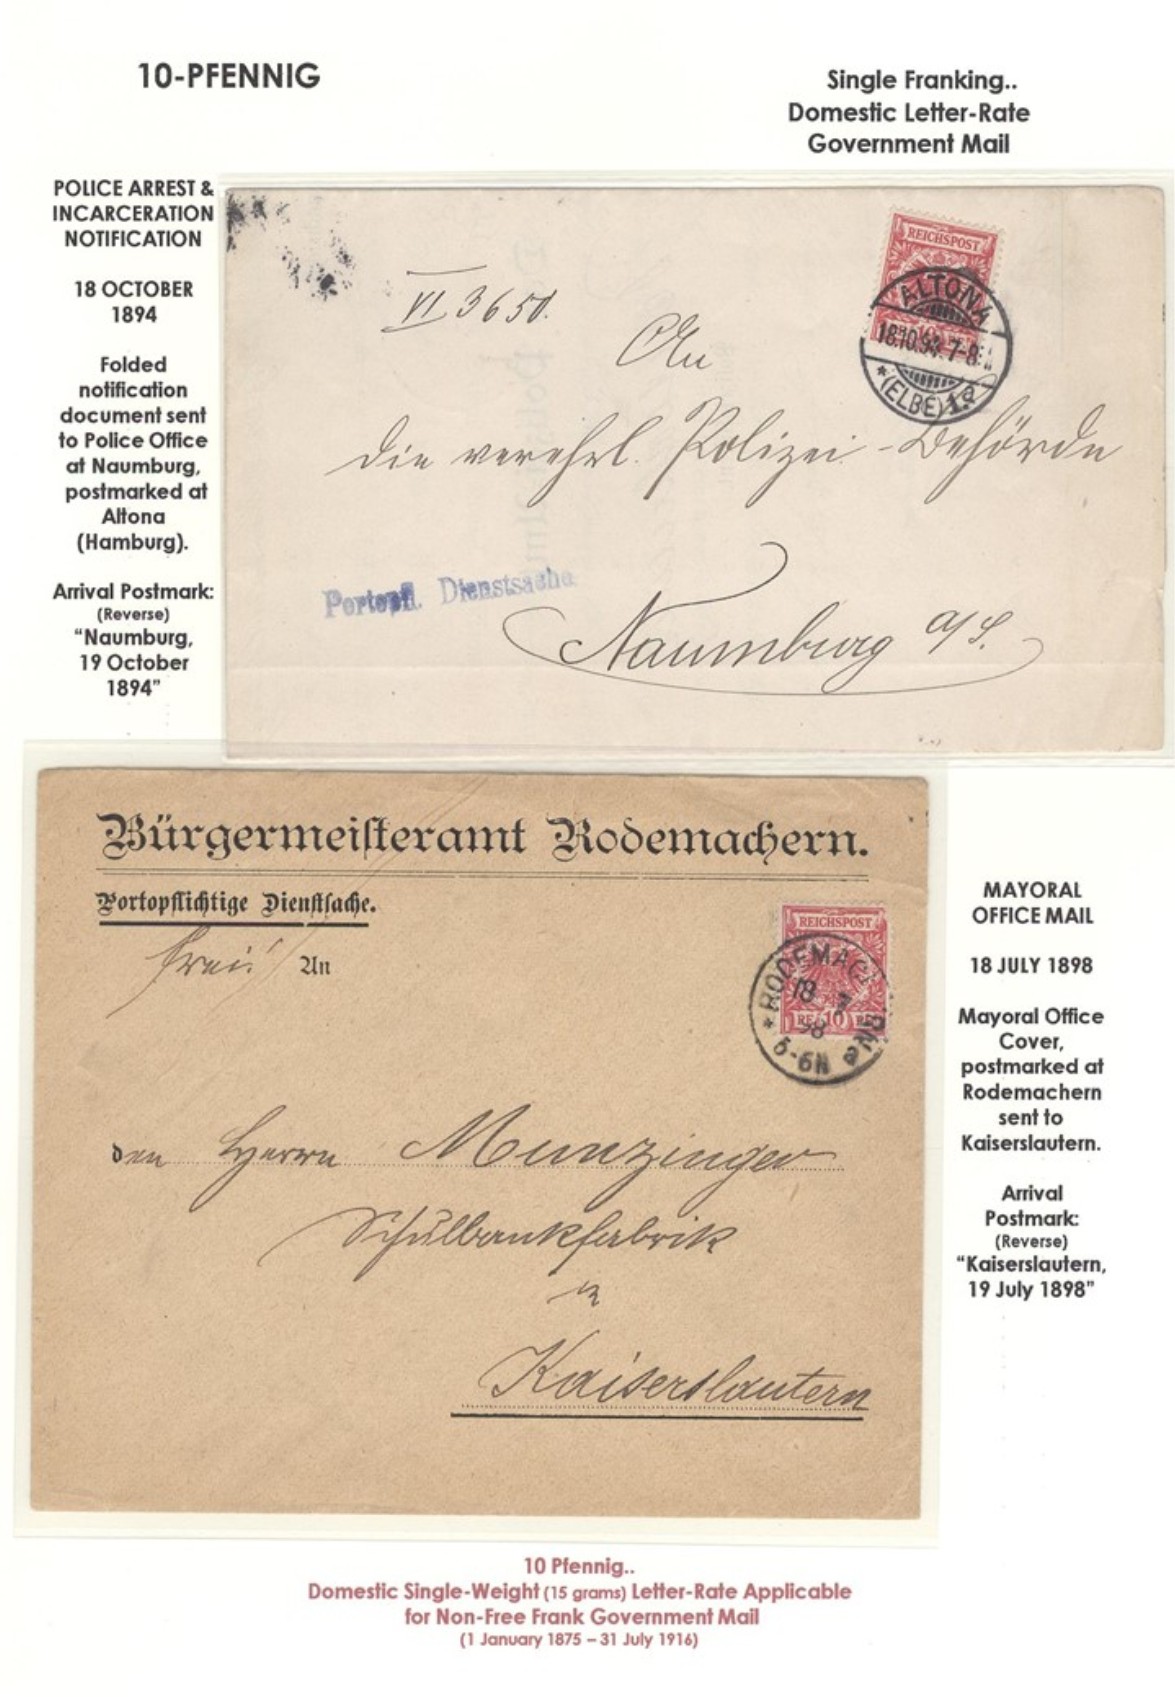 10-PFENNIG
Single Franking..
Domestic Letter-Rate
Government Mail
POLICE ARREST &
INCARCERATION
NOTIFICATION
18 OCTOBER
1894
Folded
notification
document sent
to Police Office
at Naumburg,
postmarked at
Altona
(Hamburg).
Arrival Postmark:
(Reverse)
“Naumburg,
19 October
1894”
VI 3650.
REICHSPOST
ALTONA
18.10.94. 7-8
* (ELBE) 1.
An
die verehrl. Polizei-Behörde
Portopfl. Dienstsache
Naumburg a/S.
Bürgermeisteramt Rodemachern.
Portopflichtige Dienstsache.
frei! An
REICHSPOST
10
* RODEMAC
18 7
98
5-6N
den Herrn Munzinger
Schulbankfabrik
in
Kaiserslautern
MAYORAL
OFFICE MAIL
18 JULY 1898
Mayoral Office
Cover,
postmarked at
Rodemachern
sent to
Kaiserslautern.
Arrival
Postmark:
(Reverse)
“Kaiserslautern,
19 July 1898”
10 Pfennig..
Domestic Single-Weight (15 grams) Letter-Rate Applicable
for Non-Free Frank Government Mail
(1 January 1875 – 31 July 1916)